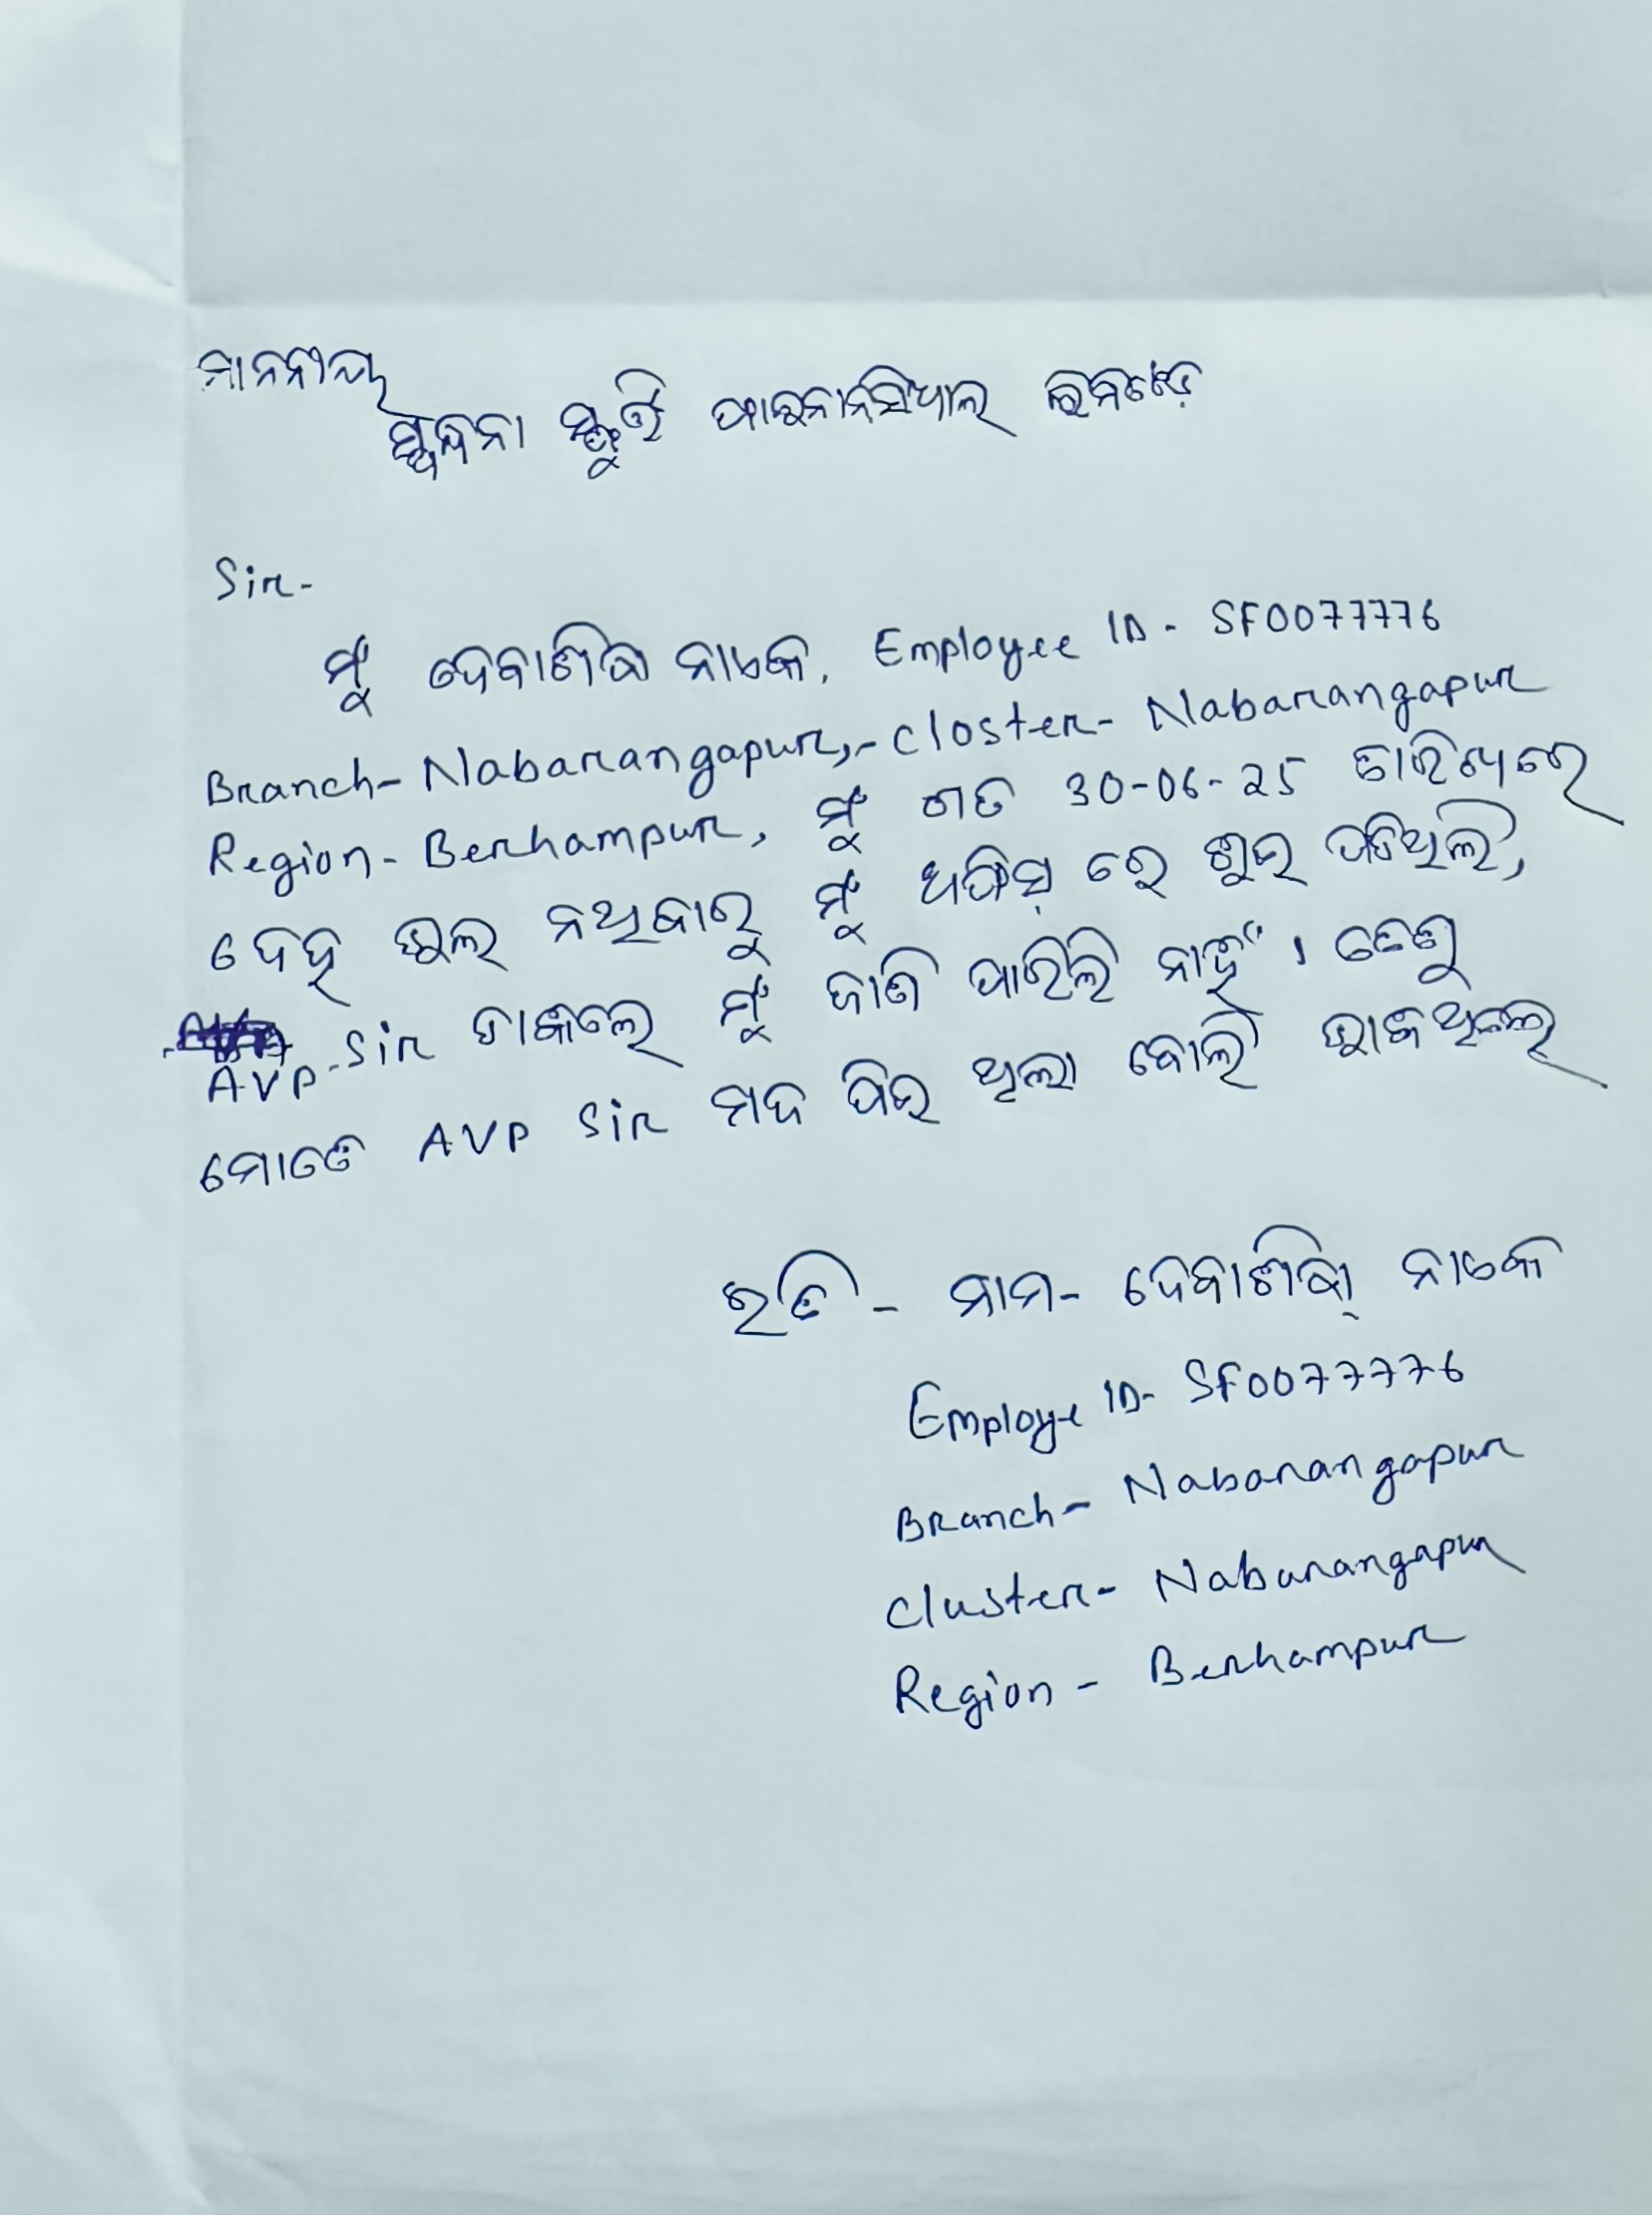 ମାନନୀୟ
ସ୍ପନ୍ଦନା ସ୍ଫୁର୍ତ୍ତି ଫାଇନାନସିଆଲ
Sir-
ମୁଁ ଦେବାଶିଷ ନାଏକ, Employee ID - SF0077776
Branch- Nabarangapur,- Closter- Nabarangapur
Region- Berhampur, ମୁଁ ଗତ 30-06-25 ତାରିଖରେ
ଦେହ ଭଲ ନଥିବାରୁ ମୁଁ ଅଫିସ୍ ରେ ଶୁଇ ପଡିଥିଲି,
AVP-Sir ଡାକଲେ ମୁଁ ଜାଣି ପାରିଲି ନାହିଁ । ତେଣୁ
ମୋତେ AVP Sir ମଦ ପିଇ ଥିଲା ବୋଲି ଭାବିଥିଲେ
ଇତି - ନାମ- ଦେବାଶିଷ୍ ନାଏକ
Employe ID- SF0077776
Branch- Nabarangapur
Cluster- Nabarangapur
Region - Berhampur